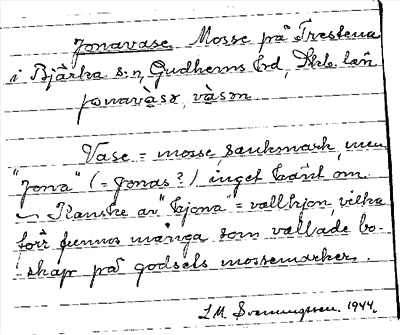 Jonavase. Mosse på Trestena
i Bjärka s:n, Gudhems hd, Skb. län
jonavàsə, vàsən
Vase = mosse, sankmark, men
"Jona" (= Jonas?) inget känt om.
Kanske av "hjona" = vallhjon, vilka
förr funnos många som vallade bo-
skap på godsets mossemarker.
L.M. Svenungsson. 1944.